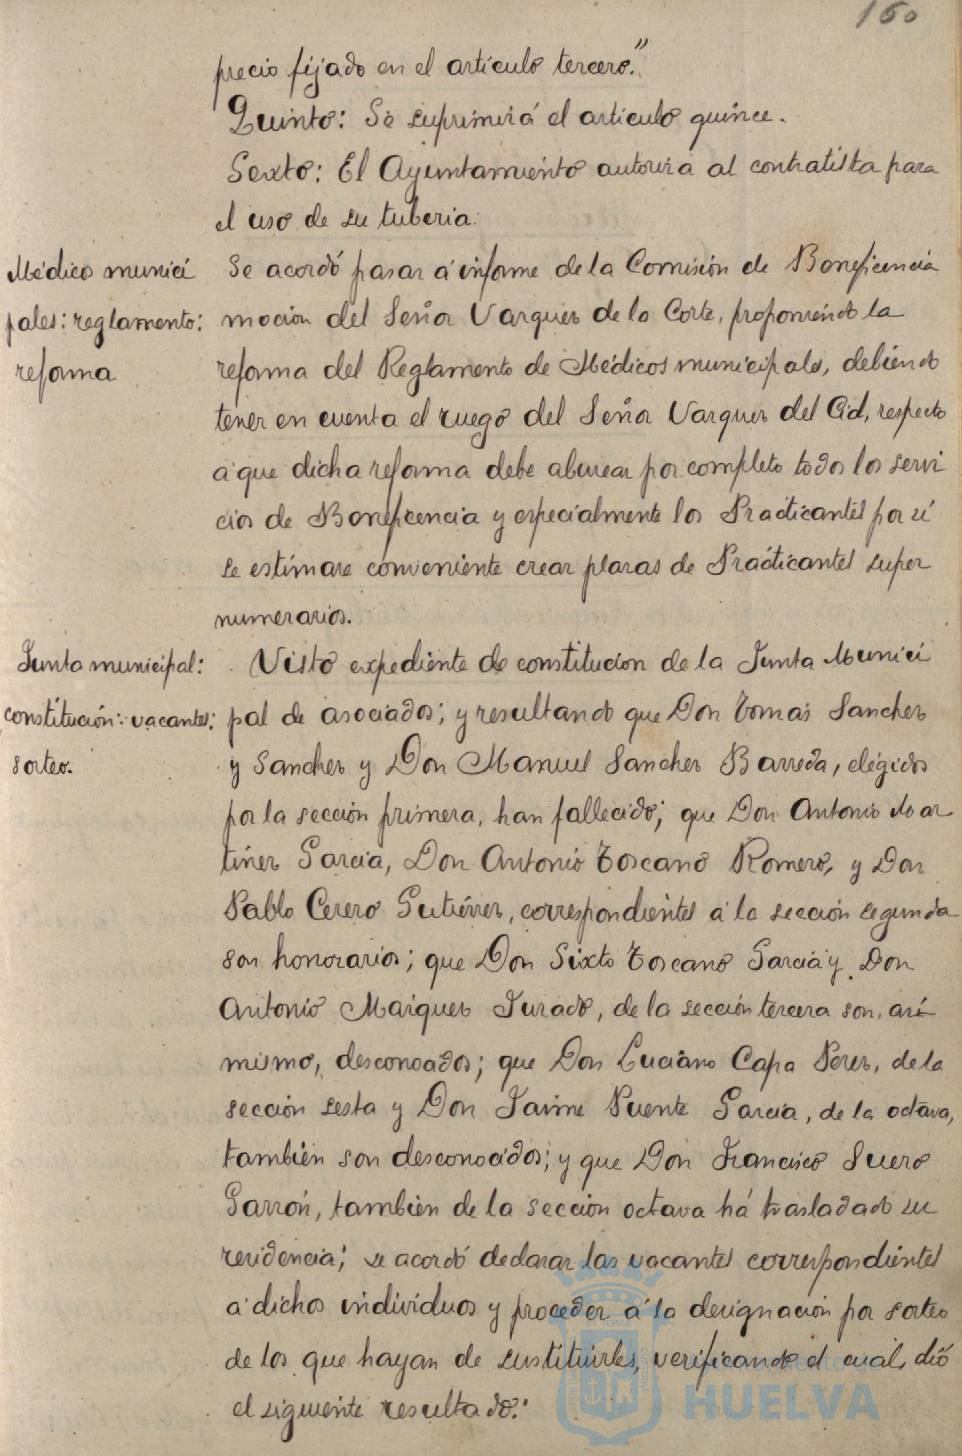 160
precio fijado en el artículo tercero."
Quinto: Se suprimirá el artículo quince.
Sexto: El Ayuntamiento autorira al contratista para
el uso de su tuberia.
Médicos munici
pales: reglamento:
reforma
Se acordó pasar á informe de la Comisión de Beneficencia
moción del Señor Varques de la Corte, proponiendo la
reforma del Reglamento de Médicos municipales, debiendo
tener en cuenta el ruego del Señor Varques del Cid, respecto
a que dicha reforma debe abarcar por completo todos los servi
cios de Beneficencia y especialmente los Practicantes por si
se estimare conveniente crear plazas de Prácticantes super
numerarios.
Junta municipal:
constitución: vacantes:
sorteo.
Visto expediente de constitucion de la Junta Munici
pal de asociados; y resultando que Don Tomás Sanches
y Sanches y Don Manuel Sanches Barreda, elegidos
por la sección primera, han fallecido; que Don Antonio Mar
tines Garcia, Don Antonio Toscano Romero, y Don
Pablo Cerero Gutiérres, correspondientes á la sección segunda
son honorarios; que Don Sixto Toscano Garcia y Don
Antonio Marques Jurado, de la sección tercera son, asi
mismo, desconocidos; que Don Luciano Capa Peres, de la
sección sesta y Don Jaime Puente Garcia, de la octava,
también son desconocidos; y que Don Francisco Suero
Garrón, tambien de la sección octava há trasladado su
residencia; se acordó declarar las vacantes correspondientes
a dichos individuos y proceder á la designación por sorteo
de los que hayan de sustituirles, verificando el cual, dió
el siguiente resultado:
HUELVA